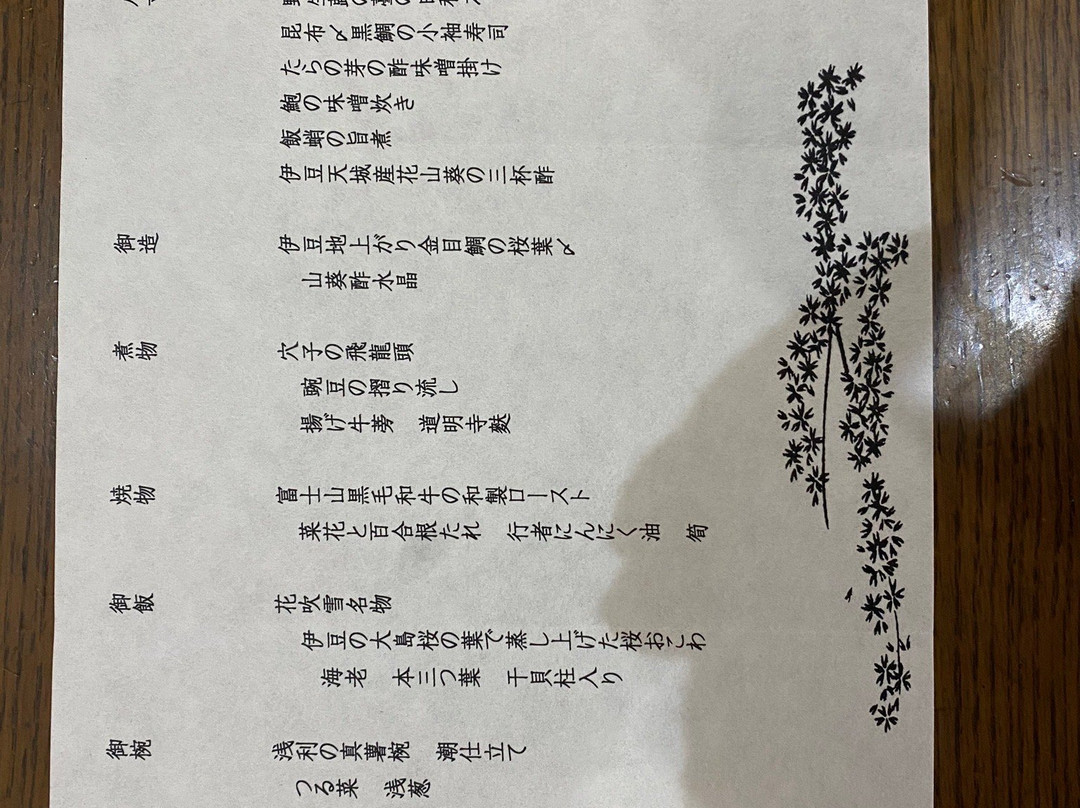 昆布〆黒鯛の小袖寿司
たらの芽の酢味噌掛け
鮑の味噌炊き
飯蛸の旨煮
伊豆天城産花山葵の三杯酢
御造　伊豆地上がり金目鯛の桜葉〆
山葵酢水晶
煮物　穴子の飛龍頭
豌豆の摺り流し
揚げ牛蒡　道明寺麩
焼物　富士山黒毛和牛の和製ロースト
菜花と百合根たれ　行者にんにく油　筍
御飯　花吹雪名物
伊豆の大島桜の葉で蒸し上げた桜おこわ
海老　本三つ葉　干貝柱入り
御椀　浅利の真薯椀　潮仕立て
つる菜　浅葱